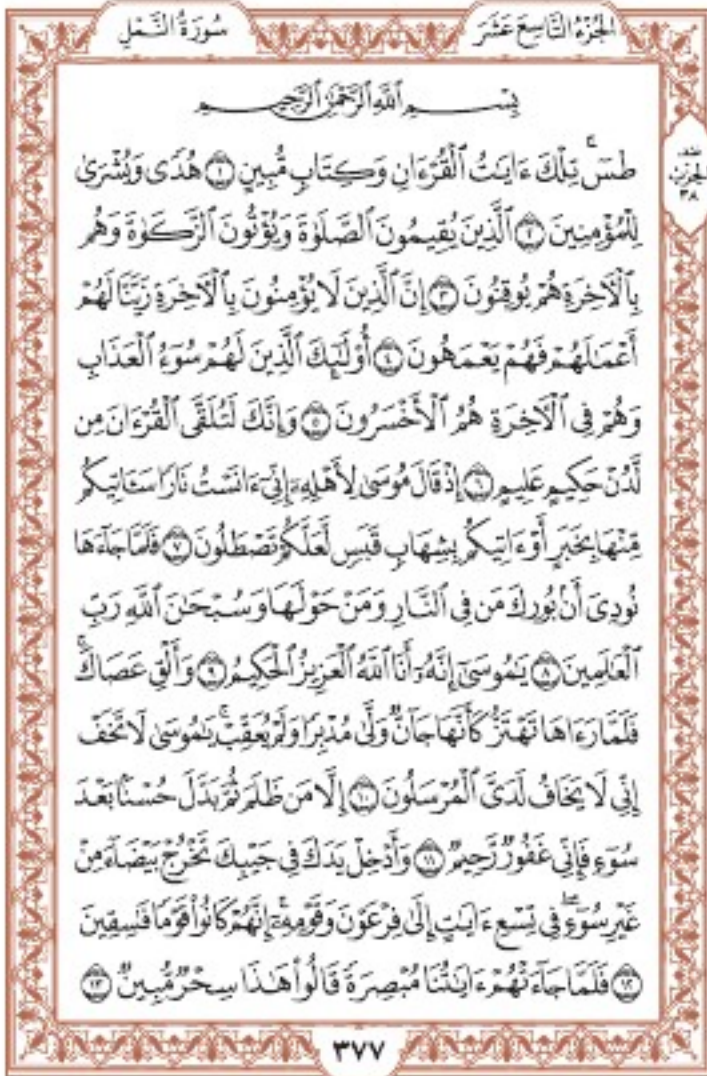 الجُزْءُ التَّاسِعَ عَشَرَ
سُورَةُ النَّمْلِ
بِسْمِ ٱللَّهِ ٱلرَّحْمَٰنِ ٱلرَّحِيمِ
طسٓۚ تِلْكَ ءَايَٰتُ ٱلْقُرْءَانِ وَكِتَابٖ مُّبِينٍ ١ هُدٗى وَبُشْرَىٰ
لِلْمُؤْمِنِينَ ٢ ٱلَّذِينَ يُقِيمُونَ ٱلصَّلَوٰةَ وَيُؤْتُونَ ٱلزَّكَوٰةَ وَهُم
بِٱلْأٓخِرَةِ هُمْ يُوقِنُونَ ٣ إِنَّ ٱلَّذِينَ لَا يُؤْمِنُونَ بِٱلْأٓخِرَةِ زَيَّنَّا لَهُمْ
أَعْمَٰلَهُمْ فَهُمْ يَعْمَهُونَ ٤ أُوْلَٰٓئِكَ ٱلَّذِينَ لَهُمْ سُوٓءُ ٱلْعَذَابِ
وَهُمْ فِي ٱلْأٓخِرَةِ هُمُ ٱلْأَخْسَرُونَ ٥ وَإِنَّكَ لَتُلَقَّى ٱلْقُرْءَانَ مِن
لَّدُنْ حَكِيمٍ عَلِيمٍ ٦ إِذْ قَالَ مُوسَىٰ لِأَهْلِهِۦٓ إِنِّيٓ ءَانَسْتُ نَارٗا سَـَٔاتِيكُم
مِّنْهَا بِخَبَرٍ أَوْ ءَاتِيكُم بِشِهَابٖ قَبَسٖ لَّعَلَّكُمْ تَصْطَلُونَ ٧ فَلَمَّا جَآءَهَا
نُودِيَ أَنۢ بُورِكَ مَن فِي ٱلنَّارِ وَمَنْ حَوْلَهَا وَسُبْحَٰنَ ٱللَّهِ رَبِّ
ٱلْعَٰلَمِينَ ٨ يَٰمُوسَىٰٓ إِنَّهُۥٓ أَنَا ٱللَّهُ ٱلْعَزِيزُ ٱلْحَكِيمُ ٩ وَأَلْقِ عَصَاكَۚ
فَلَمَّا رَءَاهَا تَهْتَزُّ كَأَنَّهَا جَآنّٞ وَلَّىٰ مُدْبِرٗا وَلَمْ يُعَقِّبْۚ يَٰمُوسَىٰ لَا تَخَفْ
إِنِّي لَا يَخَافُ لَدَيَّ ٱلْمُرْسَلُونَ ١٠ إِلَّا مَن ظَلَمَ ثُمَّ بَدَّلَ حُسْنَۢا بَعْدَ
سُوٓءٖ فَإِنِّي غَفُورٞ رَّحِيمٞ ١١ وَأَدْخِلْ يَدَكَ فِي جَيْبِكَ تَخْرُجْ بَيْضَآءَ مِنْ
غَيْرِ سُوٓءٖۖ فِي تِسْعِ ءَايَٰتٍ إِلَىٰ فِرْعَوْنَ وَقَوْمِهِۦٓۚ إِنَّهُمْ كَانُواْ قَوْمٗا فَٰسِقِينَ
١٢ فَلَمَّا جَآءَتْهُمْ ءَايَٰتُنَا مُبْصِرَةٗ قَالُواْ هَٰذَا سِحْرٞ مُّبِينٞ ١٣
٣٧٧
الحِزْبِ
٣٨